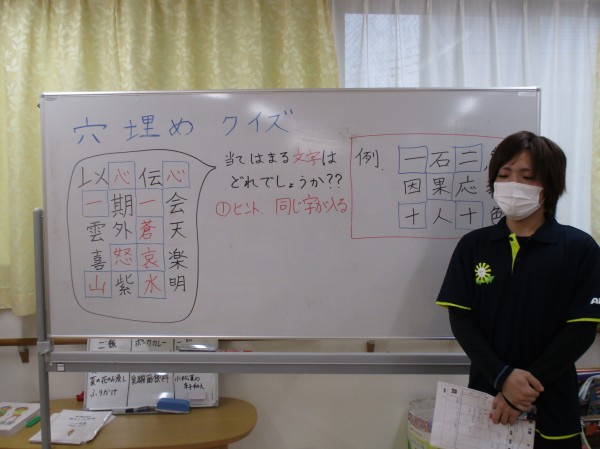 穴埋めクイズ
以心伝心
一期一会
雲外蒼天
喜怒哀楽
山紫水明
当てはまる文字は
どれでしょうか??
①ヒント、同じ字が入る
例.
一石二
因果応
十人十色
ご飯
ポークカレー
菜の花のお浸し
ふりかけ
乳酸菌飲料
小松菜の